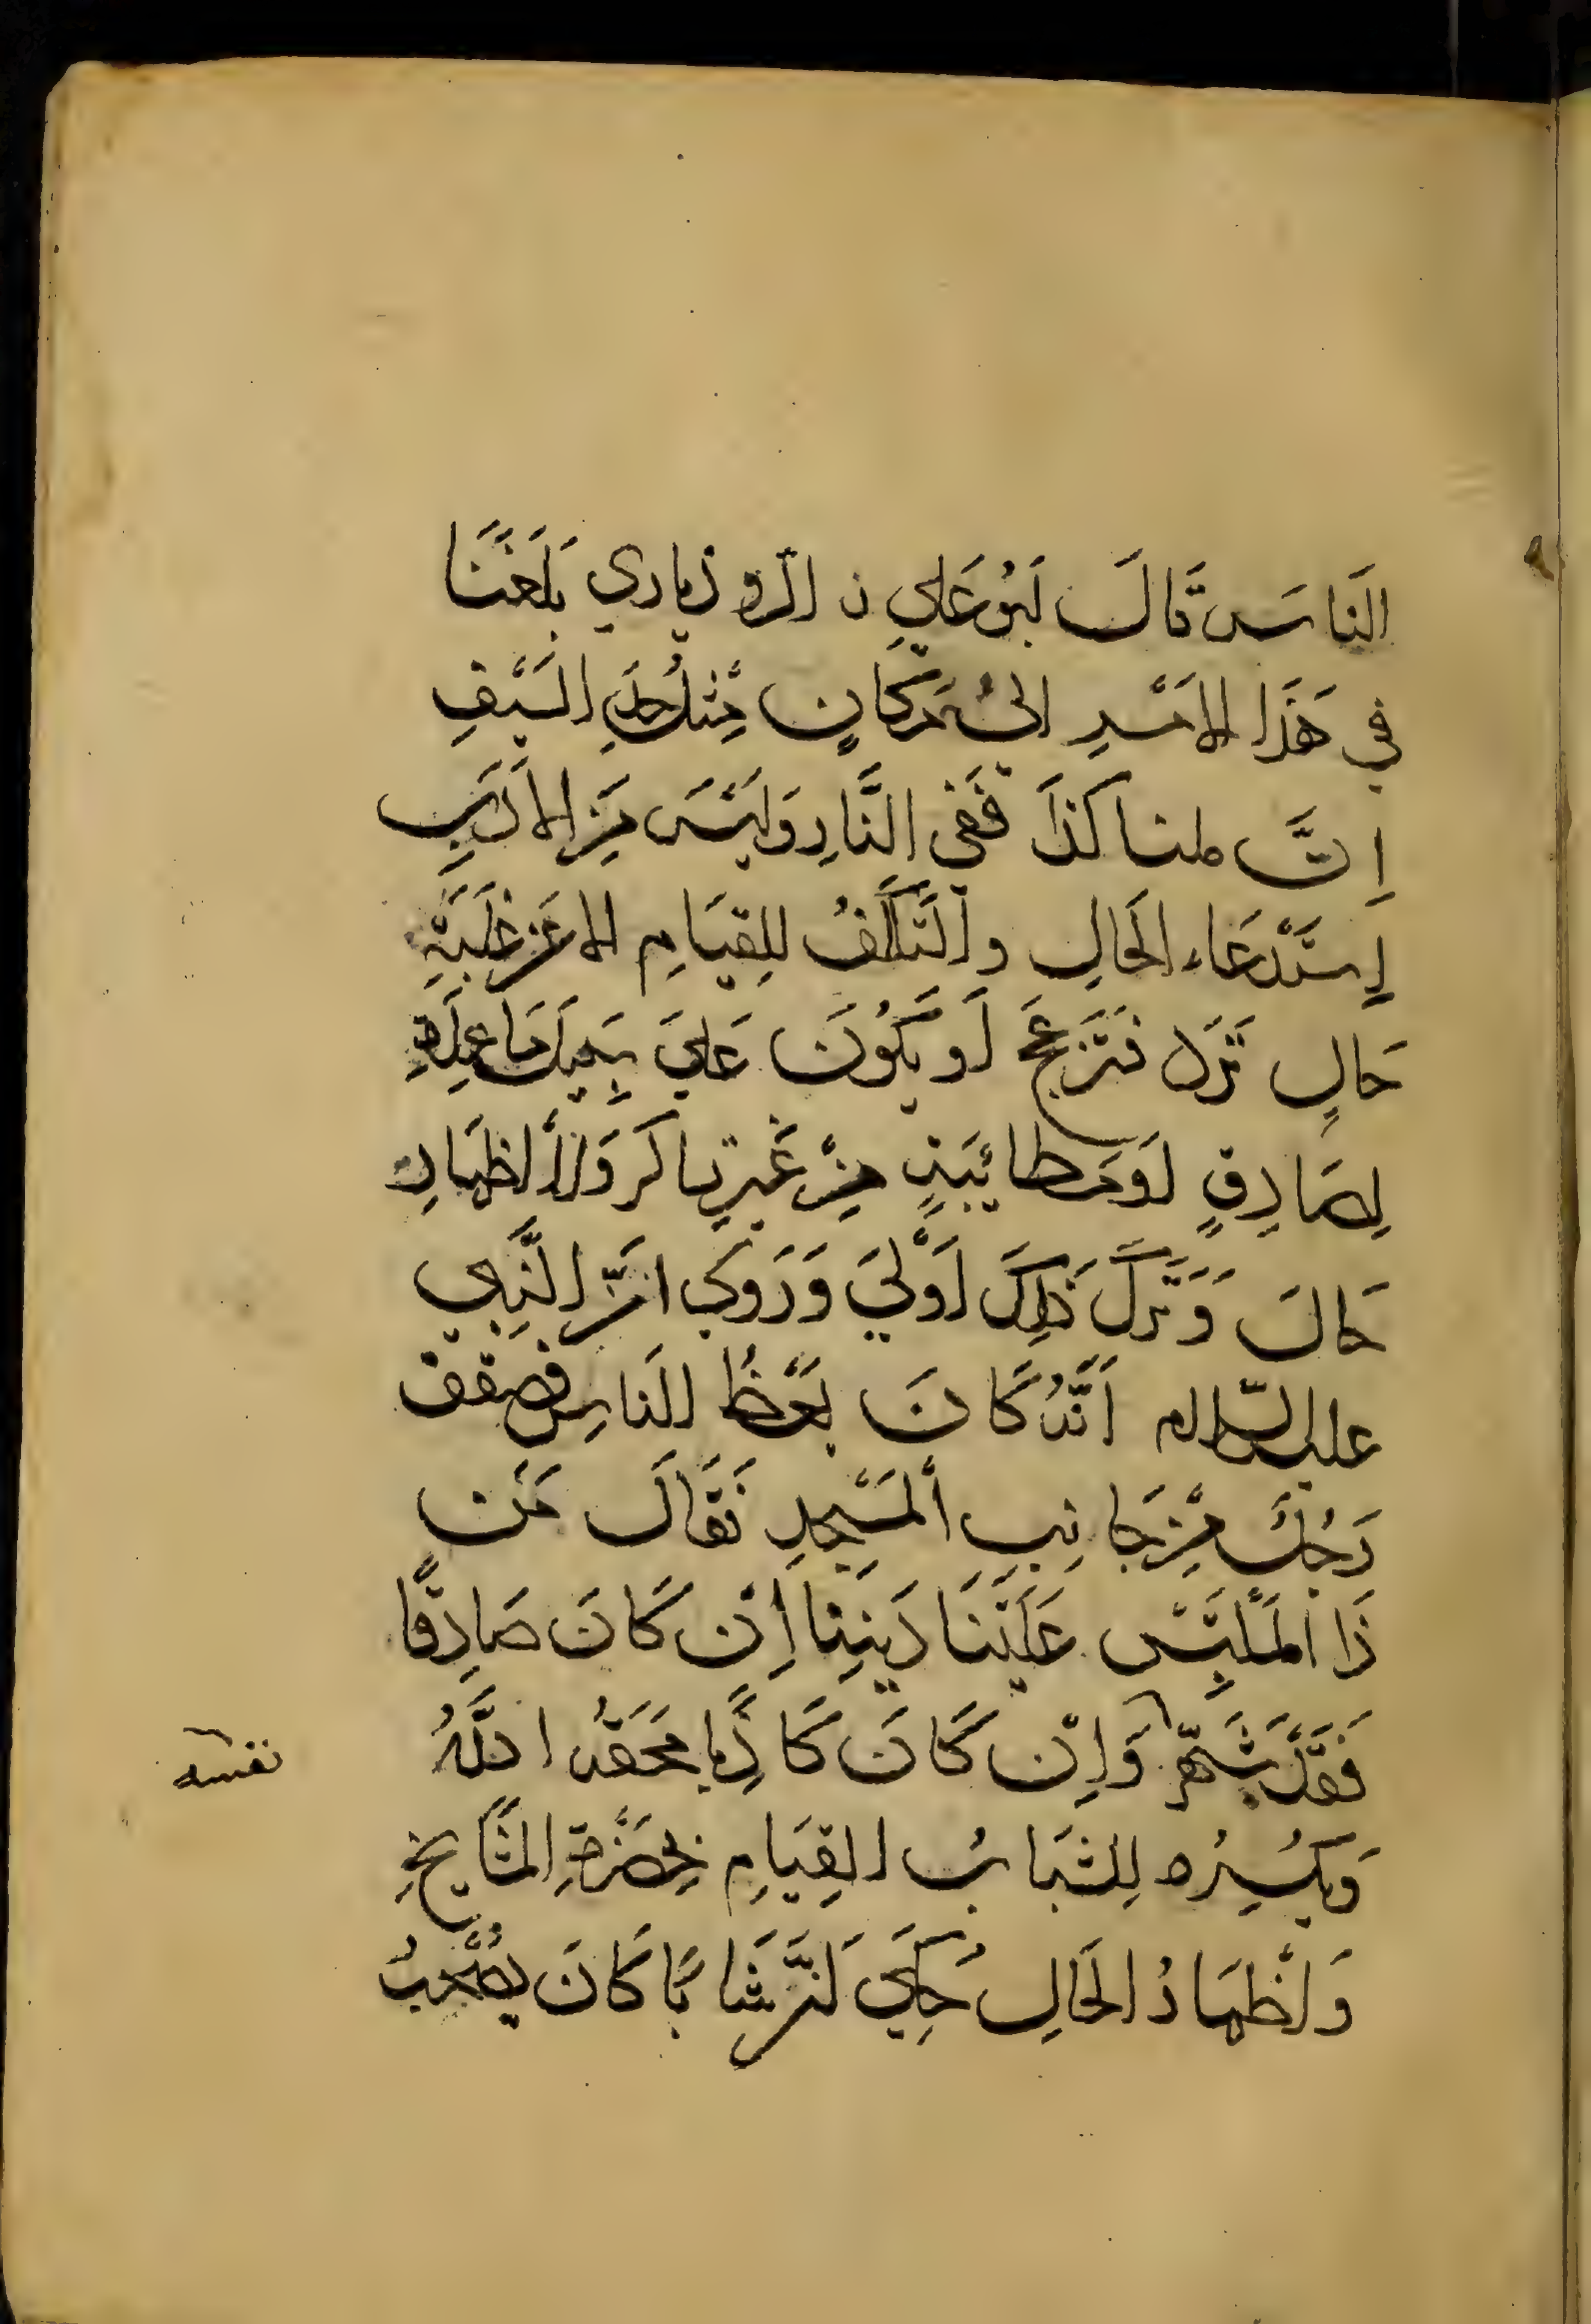 النَاسَ قَالَ اَبُو عَلي ن الروذباري بَلَغنَا
في هَذَا الامْرِ الىَ مَكَانٍ مِثْلُ حَدِ السَيْفِ
اِنَّ ملنا كَذَا فَفي النَّارِ وَلَيْسَ مِنَ الادَبِ
اِسْتَدْعَاء الحَالِ والتَكَلُّفُ للِقيَامِ الا عَن غَلَبَةِ
حَالٍ تَرِدُ فَتَزعَجُ اَو يَكُونَ عَليَ سَبيلِ مُسَاعَدَةِ
لِصَادِقٍ اَو مَطَايَبَةٍ مِنْ غَيرِ تساكر وَلا اِظهَارِ
حَالَ وَتَركَ ذَلِكَ اَوْليَ وَرَوي انَّ النَّبِي
عليه السّلام اَنَّهُ كَانَ يَعِظُ النَاسِ فصعق
رَجُلٌ مِن جَانِبِ اْلمَسْجِدِ فَقَالَ مَن
ذَا الْمُلَبِّسُ عَلَيْنَا دِينِنَا اِن كَانَ صَادِقًا
فَقَدْ شَهّرَ وَاِنْ كَانَ كَاذِبًا مَحَقَهُ اللَّهُ
نفسه
وَيَكْرِه لِلشَبَابُ القِيَامِ بِحَضْرَةِ المَشَايخِ
وَاظْهَارُ الحَالِ حُكِيَ اَنَّ شَابًا كَانَ يصْحَبُ